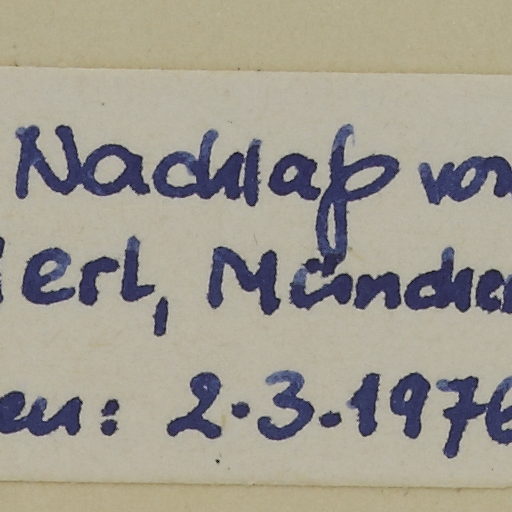 Nachlaß von
erl, München
en: 2.3.1976